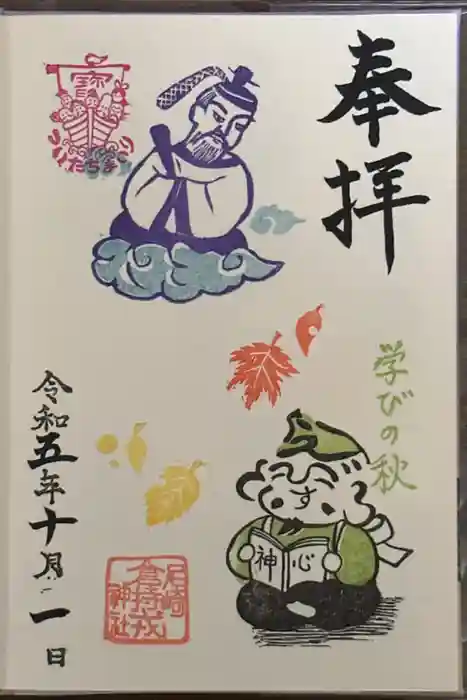 奉拝
学びの秋
宝
す
神心
尼崎
戎
神社
令和五年十月二一日